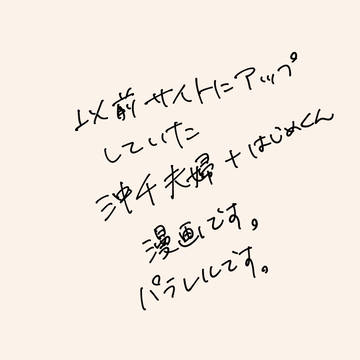 以前サイトにアップ
していた
沖千夫婦+はじめくん
漫画です。
パラレルです。